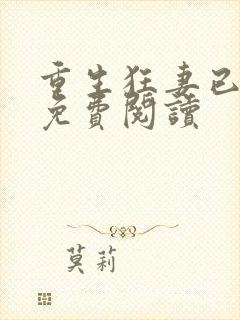 重生狂妻已
免費閱讀
莫莉